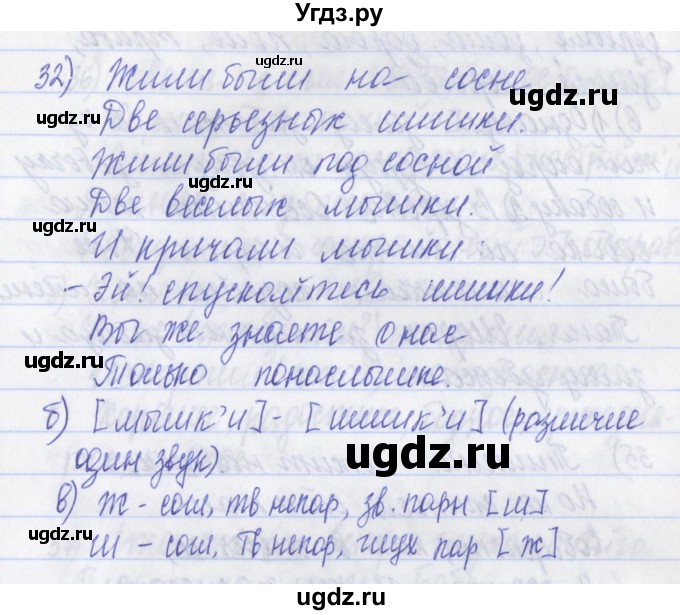 Угдз.ру
32) Жили были на сосне
Две серьезных шишки.
Жили были под сосной
Две веселых мышки.
И кричали мышки:
- Эй! спускайтесь шишки!
Вы же знаете о нас
Только понаслышке.
б) [мышк'и] - [шишк'и] (различие
один звук).
в) ж - согл, тв непар, зв. парн [ш]
ш - согл, тв непар, глух пар [ж]
ugdz.ru
ugdz.ru
ugdz.ru
ugdz.ru
ugdz.ru
ugdz.ru
ugdz.ru
ugdz.ru
ugdz.ru
ugdz.ru
ugdz.ru
ugdz.ru
ugdz.ru
ugdz.ru